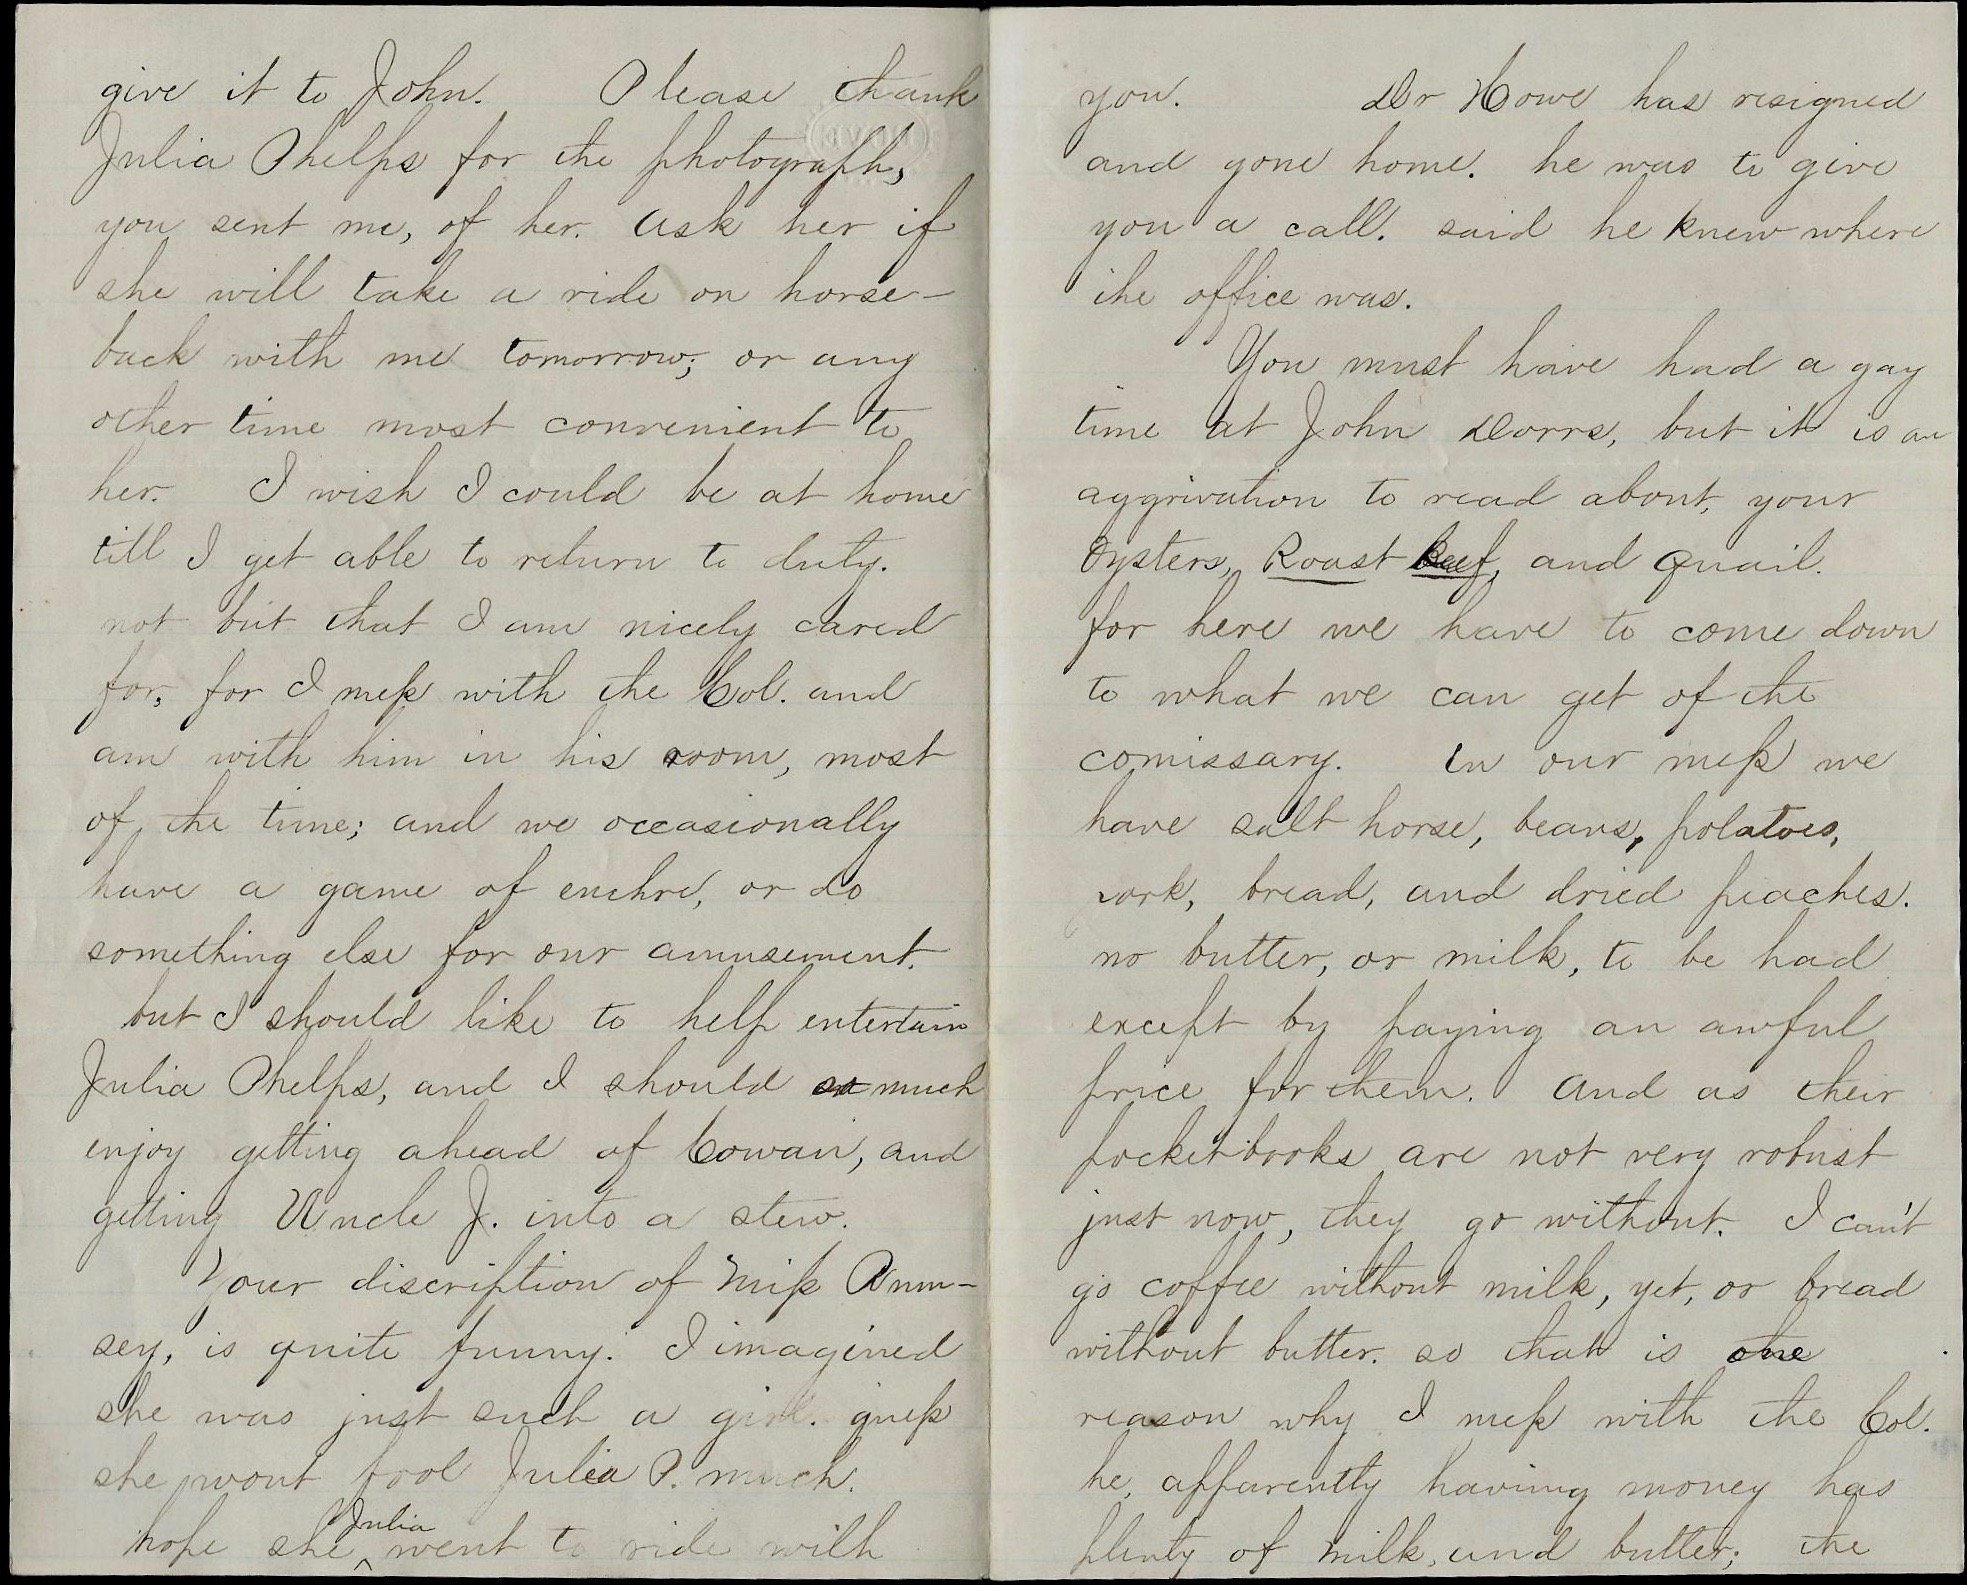 give it to John. Please thank
Julia Phelps for the photograph,
you sent me, of her. Ask her if
she will take a ride on horse-
back with me tomorrow; or any
other time most convenient to
her. I wish I could be at home
till I get able to return to duty.
not but that I am nicely cared
for, for I mess with the Col. and
am with him in his room, most
of the time; and we occasionally
have a game of euchre, or do
something else for our amusement.
but I should like to help entertain
Julia Phelps, and I should so much
enjoy getting ahead of Cowan, and
getting Uncle J. into a stew.
Your discription of Miss
sey, is quite funny. I imagined
she was just such a girl. guess
she wont fool Julia P. much.
hope she Julia went to ride with
you. Dr Howe has resigned
and gone home. he was to give
you a call. said he knew where
the office was.
You must have had a gay
time at John Dorrs, but it is an
aggrivation to read about, your
Oysters, Roast Beef, and Quail.
for here we have to come down
to what we can get of the
comissary. In our mess we
have salt horse, beans, potatoes,
pork, bread, and dried peaches.
no butter, or milk, to be had
except by paying an awful
price for them. And as their
pocketbooks are not very robust
just now, they go without. I can't
go coffee without milk, yet, or bread
without butter. so that is one
reason why I mess with the Col.
he, apparently having money has
plenty of milk, and butter; the